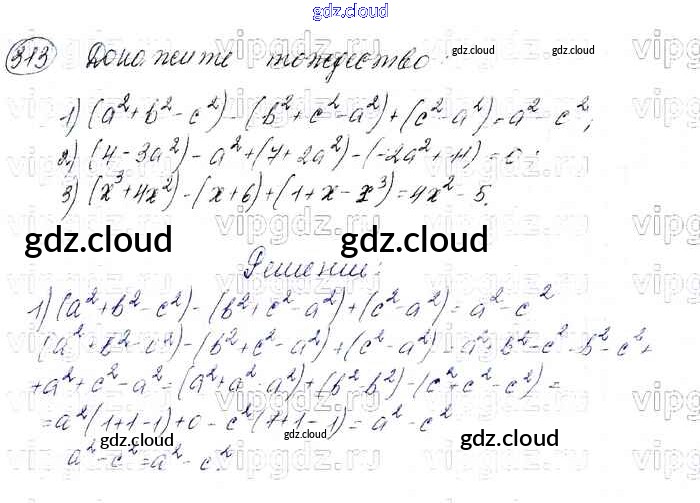 gdz.cloud
313 Докажите тождество:
1) (a² + b² - c²) - (b² + c² - a²) + (c² - a²) = a² - c²;
2) (4 - 3a²) - a² + (7 + 2a²) - (-2a² + 11) = 0;
3) (x³ + 4x²) - (x + 6) + (1 + x - x³) = 4x² - 5.
gdz.cloud gdz.cloud
Решение:
1) (a² + b² - c²) - (b² + c² - a²) + (c² - a²) = a² - c²
(a² + b² - c²) - (b² + c² - a²) + (c² - a²) = a² + b² - c² - b² - c² +
+ a² + c² - a² = (a² + a² - a²) + (b² - b²) - (c² + c² - c²) =
= a²(1+1-1) + 0 - c²(1+1-1) = a² - c²
a² - c² = a² - c².
gdz.cloud gdz.cloud gdz.cloud
vipgdz.ru